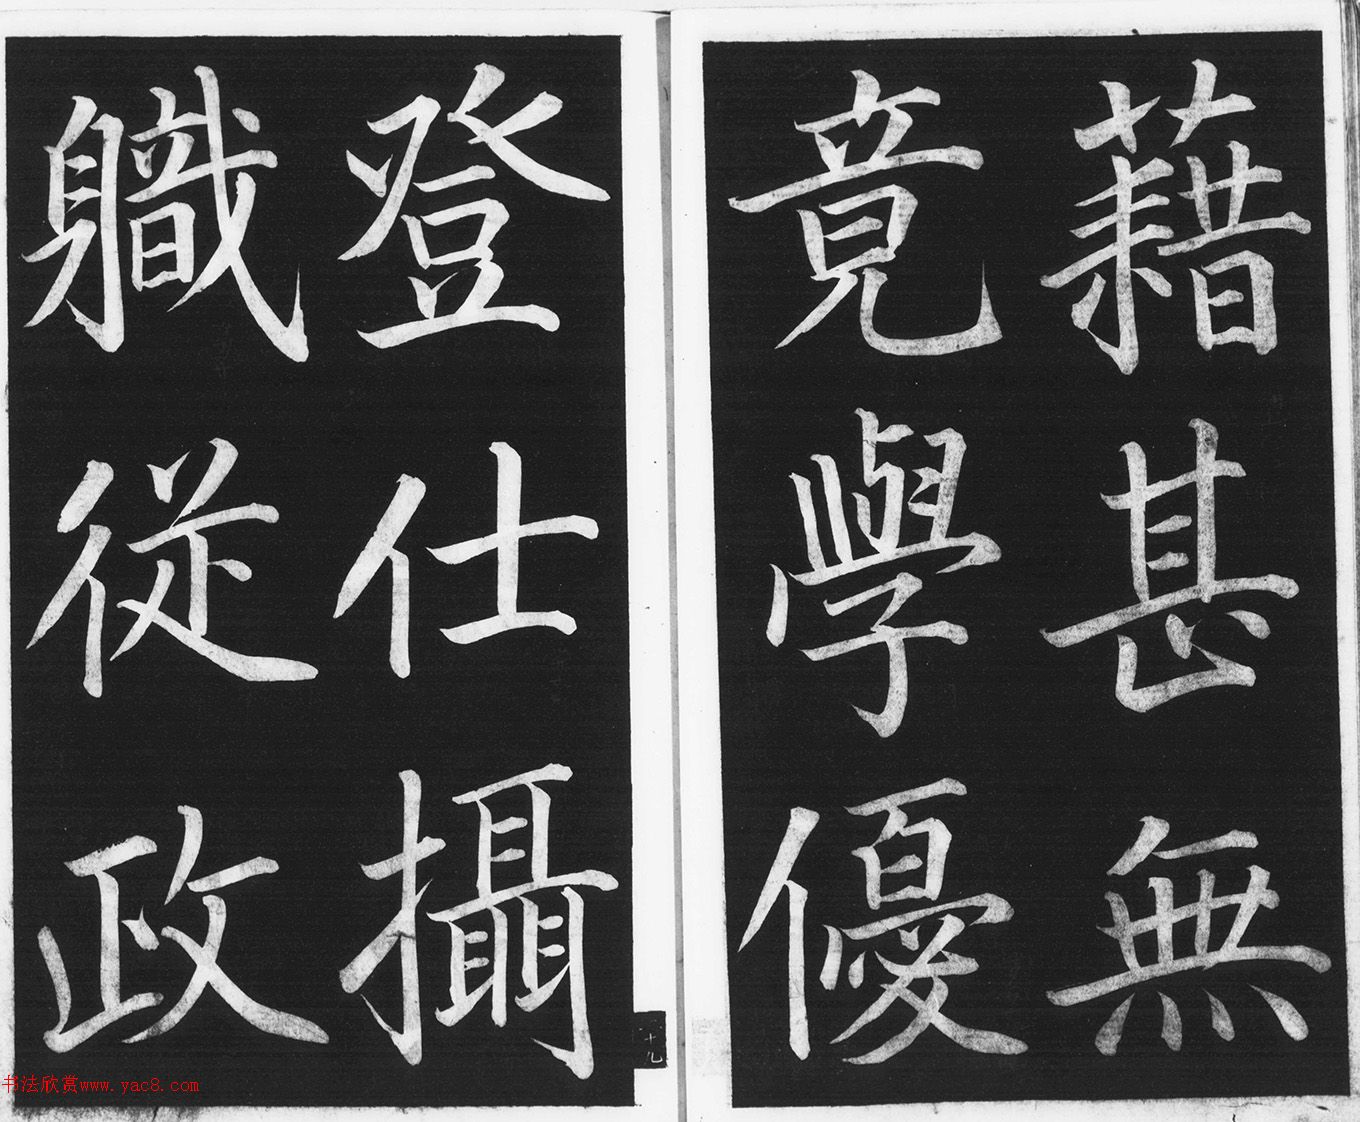 藉甚無
竟學優
登仕攝
職從政
十九
书法欣赏www.yac8.com